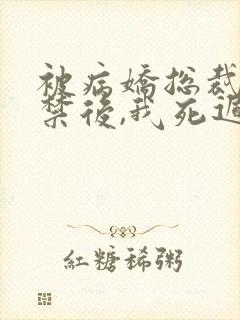 被病嬌總裁
禁後,我死遁
紅糖稀粥